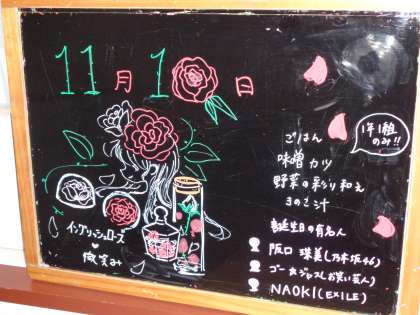 11月10日
1年1組
のみ!!
ごはん
味噌カツ
野菜の彩り和え
きのこ汁
誕生日の有名人
阪口 珠美(乃木坂46)
ゴー☆ジャス(お笑い芸人)
NAOKI(EXILE)
イングリッシュローズ
微笑み